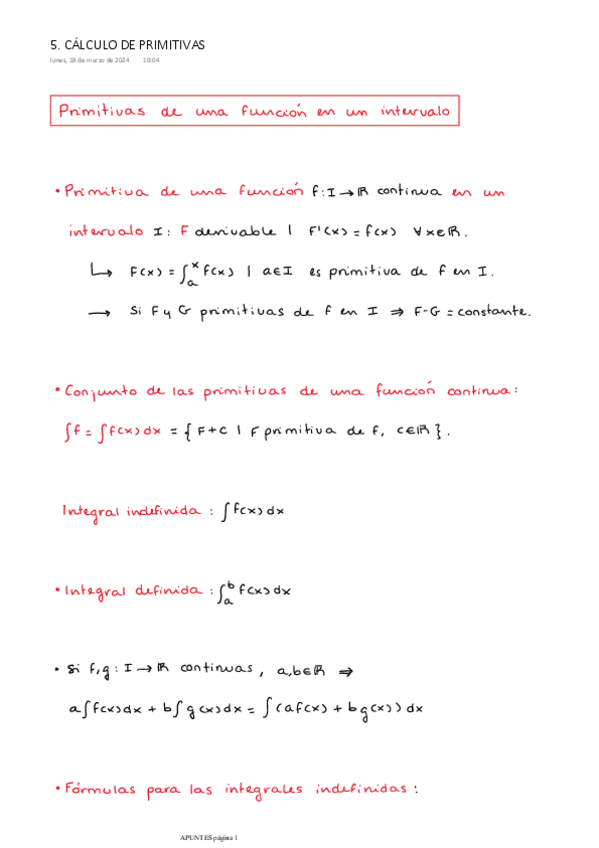 5. CÁLCULO DE PRIMITIVAS
lunes, 18 de marzo de 2024 10:04
Primitivas de una función en un intervalo
• Primitiva de una función f: I → ℝ continua en un
intervalo I: F derivable | F'(x) = f(x) ∀x∈ℝ.
↳ F(x) = ∫ₐˣ f(x) | a∈I es primitiva de f en I.
→ Si F y G primitivas de f en I ⇒ F-G = constante.
• Conjunto de las primitivas de una función continua:
∫f = ∫f(x)dx = { F+C | F primitiva de f, C∈ℝ }.
Integral indefinida : ∫f(x)dx
• Integral definida : ∫ₐᵇ f(x)dx
• Si f,g : I → ℝ continuas, a,b∈ℝ ⇒
a∫f(x)dx + b∫g(x)dx = ∫(af(x) + bg(x))dx
• Fórmulas para las integrales indefinidas :
APUNTES página 1